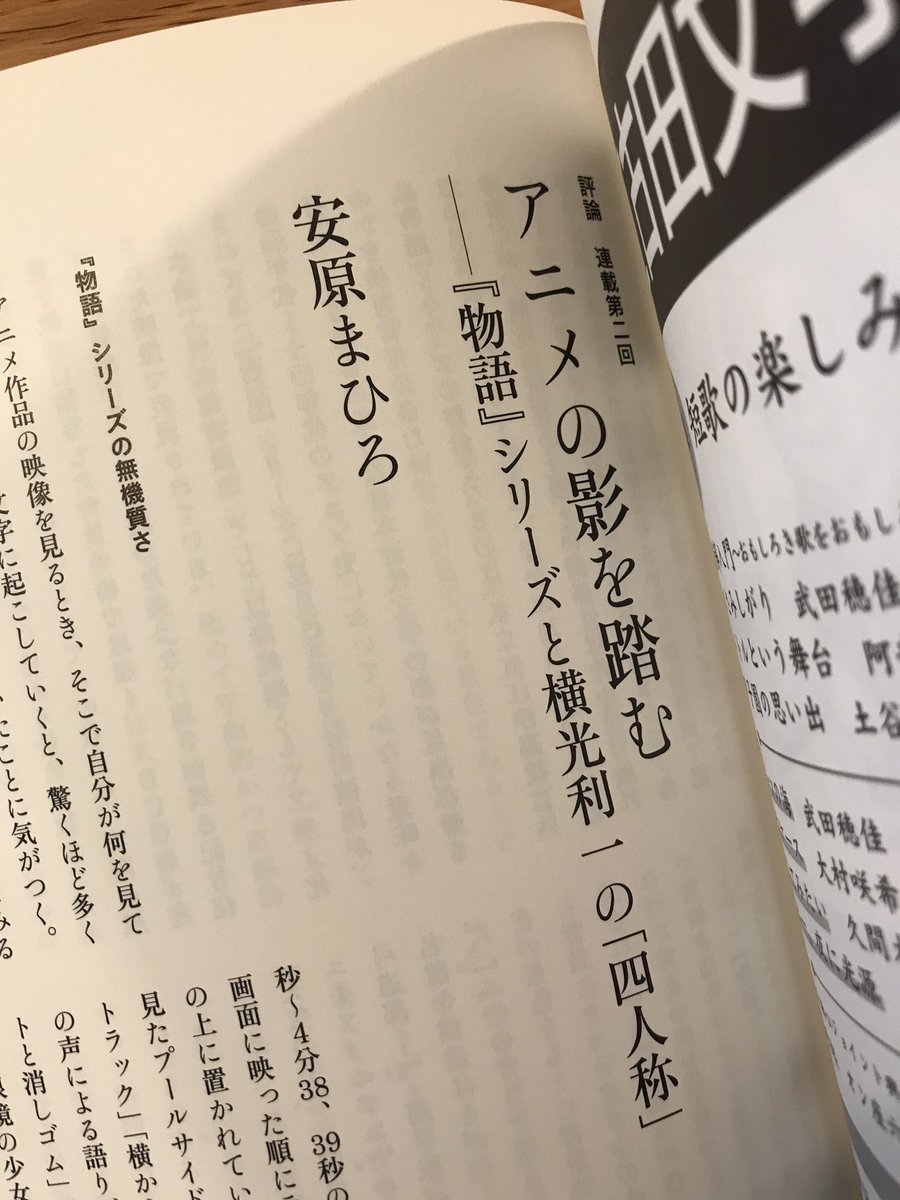 田文
短歌の楽しみ
入門〜おもしろき歌をおもし
みしがり 武田穂佳
ルという舞台 阿
の思い出 土谷
武田穂佳
大村咲希
久間
光源
評論 連載第二回
アニメの影を踏む
――『物語』シリーズと横光利一の「四人称」
安原まひろ
『物語』シリーズの無機質さ
アニメ作品の映像を見るとき、そこで自分が何を見て
文字に起こしていくと、驚くほど多く
たことに気がつく。
みる
秒〜4分38、39秒の
画面に映った順に
の上に置かれてい
見たプールサイド
トラック」「横か
の声による語り
トと消しゴム」
鏡の少女